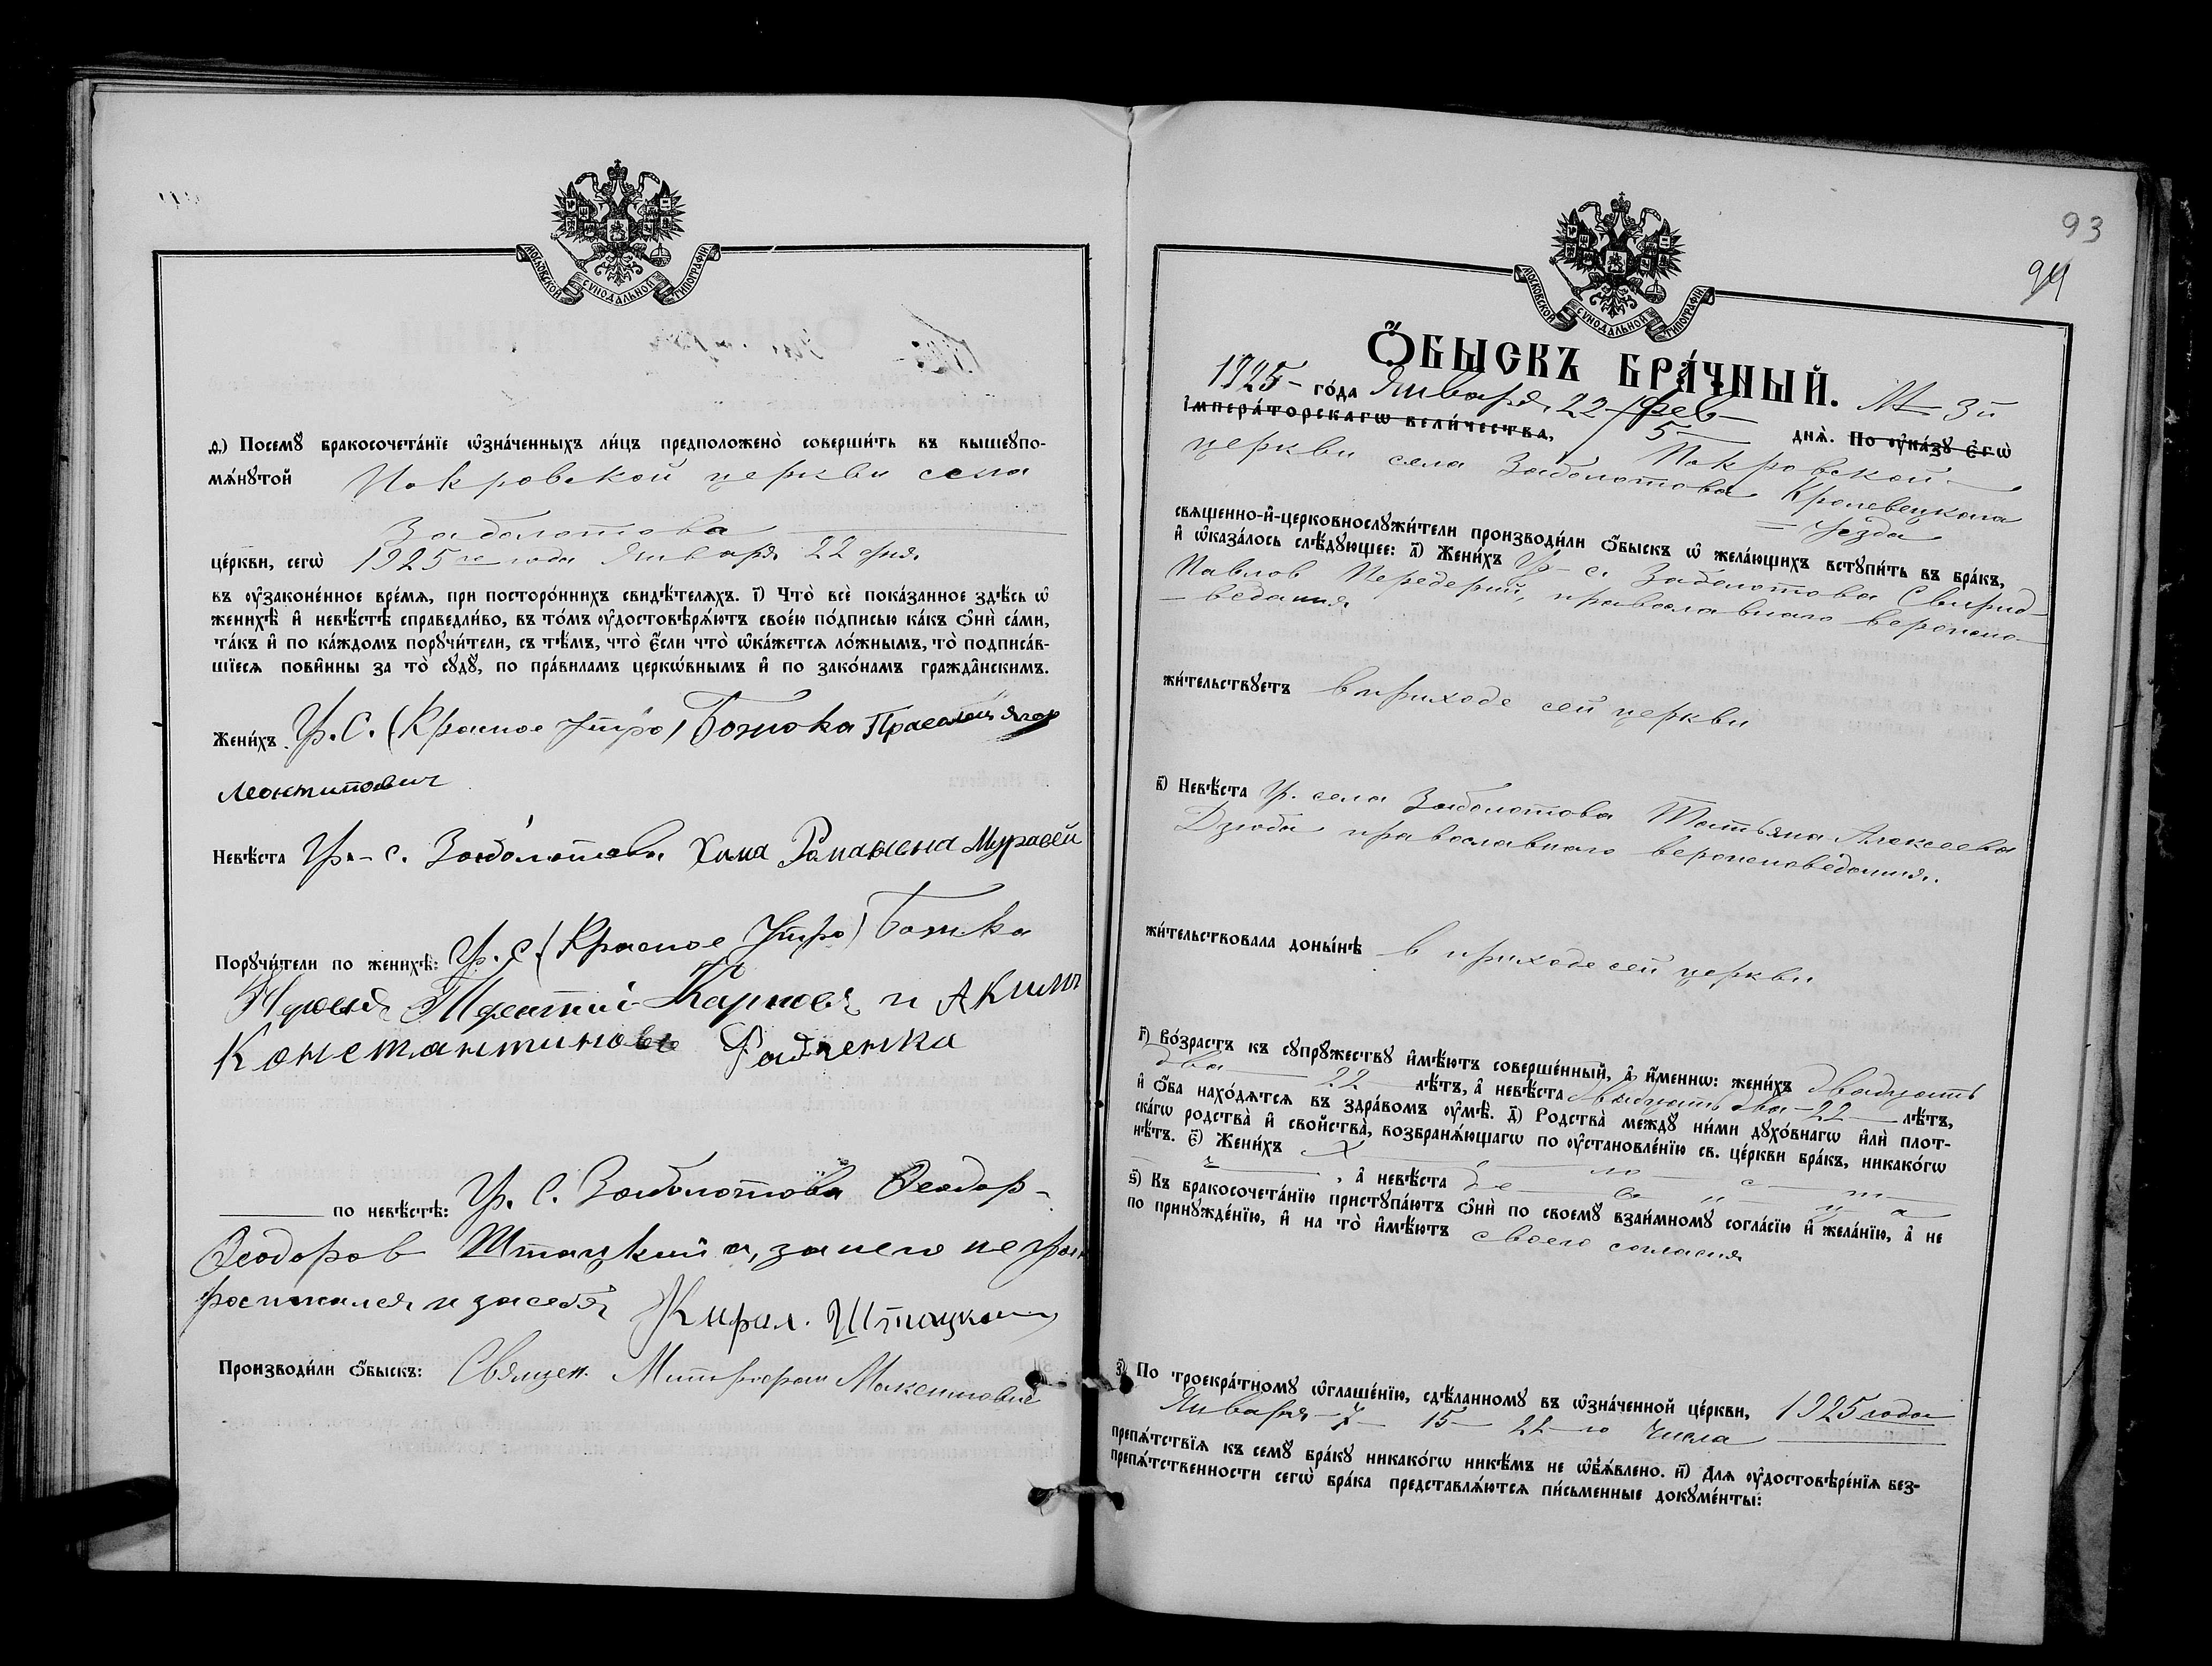 МОСКОВСКОЙ СУНОДАЛЬНОЙ ТИПОГРАФІИ
ѳ҃.) Посемꙋ̀ бракосочета́нїе ѡ҆зна́ченныхъ ли́цъ предположено̀ соверши́ть въ вышеꙋпо-
мѧ́нꙋтой Покровской церкви села
Заболотова
це́ркви, сегѡ̀ 1925 го года Января 22 дня
въ ᲂу҆законе́нное вре́мѧ, при посторо́ннихъ свидѣ́телѧхъ. і҃) Что̀ всѐ пока́занное здѣ́сь ѡ҆
женихѣ̀ и҆ невѣ́стѣ справедли́во, въ то́мъ ᲂу҆достовѣрѧ́ютъ свое́ю по́дписью ка́къ ѻ҆нѝ са́ми,
та́къ и҆ по ка́ждомъ порꙋчи́тели, съ тѣ́мъ, что̀ є҆́сли что̀ ѡ҆ка́жетсѧ ло́жнымъ, то̀ подписа́в-
шїесѧ пови́нны за то̀ сꙋдꙋ̀, по пра́виламъ церкѡ́внымъ и҆ по зако́намъ гражда́нскимъ.
Жени́хъ Гр. С. (Красное Утро) Божока
Леонтиевич
Невѣ́ста Гр. с. Заболотова Хима Романовна Муравей
Порꙋчи́тели по женихѣ̀: Гр. С. (Красное Утро) Божка
Терентий Карповъ и Акимъ
Константиновъ Радченка
по невѣ́стѣ: Гр. С. Заболотова Ѳеодор
Ѳеодоров Штацкий а, за него негра
росписался и засебя Кирил. Штацкий
Производи́ли ѻ҆́быскъ: Священ. Митрофан Максимович
93
94
МОСКОВСКОЙ СУНОДАЛЬНОЙ ТИПОГРАФІИ
Ѻ҆́БЫСКЪ БРА́ЧНЫЙ.
1925 го́да Января 22 / Фев 5 № 3й
днѧ̀. По ᲂу҆ка́зꙋ Є҆гѡ̀
І҆мпера́торскагѡ вели́чества, Покровской
церкви села Заболотова Кролевецкого
Уезда
свѧщенно-и҆-церковнослꙋжи́тели производи́ли ѻ҆́быскъ ѡ҆ жела́ющихъ встꙋпи́ть въ бра́къ,
и҆ ѡ҆каза́лось слѣ́дꙋющее: а҃) Жени́хъ Гр. с. Заболотова Свирид
Павлов Передерий, православного вероиспо-
ведания
жи́тельствꙋетъ в приходе сей церкви
в҃) Невѣ́ста Гр. села Заболотова Татьяна Алексеева
Дзюба православного вероисповедания.
жи́тельствовала доны́нѣ в приходе сей церкви
г҃) Во́зрастъ къ сꙋпрꙋ́жествꙋ и҆мѣ́ютъ соверше́нный, а҆ и҆́меннѡ: жени́хъ двадцать
два 22 лѣ́тъ, а҆ невѣ́ста двадцать два - 22 лѣ́тъ,
и҆ ѻ҆́ба нахо́дѧтсѧ въ здра́вомъ ᲂу҆мѣ̀. д҃) Родства̀ междꙋ ни́ми дꙋхо́внагѡ и҆лѝ плот-
ска́гѡ родства̀ и҆ сво́йства̀, возбранѧ́ющагѡ по ᲂу҆становле́нїю св. це́ркви бра́къ, никако́гѡ
нѣ́тъ. є҃) Жени́хъ х о л о с т
, а҆ невѣ́ста д е в и ц а
ѕ҃) Къ бракосочета́нїю пристꙋпа́ютъ ѻ҆нѝ по своемꙋ̀ взаи́мномꙋ согла́сїю и҆ жела́нїю, а҆ не
по принꙋжде́нїю, и҆ на то̀ и҆мѣ́ютъ своего согласия
з҃) По троекра́тномꙋ ѡ҆глаше́нїю, сдѣ́ланномꙋ въ ѡ҆зна́ченной це́ркви, 1925 года
Января - 7 - 15 - 22 го числа
препѧ́тствїѧ къ семꙋ̀ бра́кꙋ никако́гѡ никѣ́мъ не ѡ҆б̾ѧ́влено. и҃) Длѧ ᲂу҆достовѣре́нїѧ без-
препѧ́тственности сегѡ̀ бра́ка представлѧ́ютсѧ пи́сьменные докꙋме́нты: